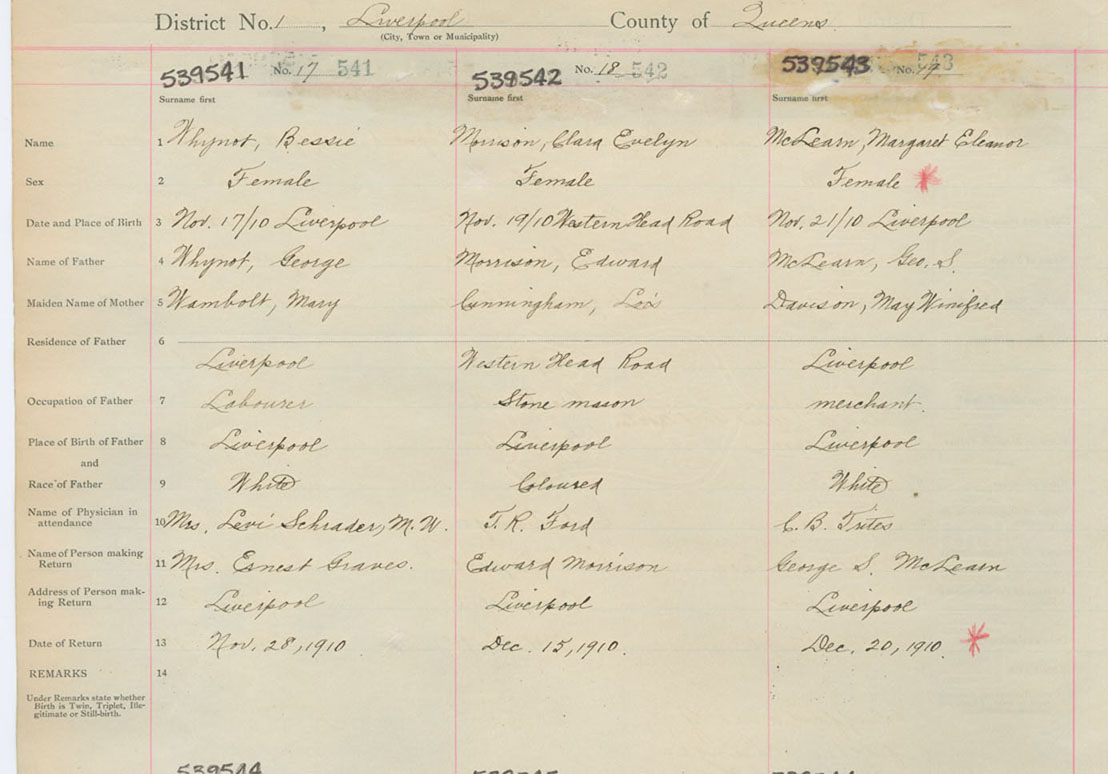 District No. 1, Liverpool County of Queens
(City, Town or Municipality)
539541 No. 17 541 539542 No. 18 542 539543 No. 543
Surname first Surname first Surname first
Name 1 Whynot, Bessie Morrison, Clara Evelyn McLearn, Margaret Eleanor
Sex 2 Female Female Female
Date and Place of Birth 3 Nov. 17/10 Liverpool Nov. 19/10 Western Head Road Nov. 21/10 Liverpool
Name of Father 4 Whynot, George Morrison, Edward McLearn, Geo. S.
Maiden Name of Mother 5 Wambolt, Mary Cunningham, Lois Davison, May Winifred
Residence of Father 6
Liverpool Western Head Road Liverpool
Occupation of Father 7 Labourer Stone mason merchant.
Place of Birth of Father 8 Liverpool Liverpool Liverpool
and
Race of Father 9 White Coloured White
Name of Physician in
attendance 10 Mrs. Levi Schrader, M.W. T. R. Ford C. B. Trites
Name of Person making
Return 11 Mrs. Ernest Graves. Edward Morrison George S. McLearn
Address of Person mak-
ing Return 12 Liverpool Liverpool Liverpool
Date of Return 13 Nov. 28, 1910 Dec. 15, 1910. Dec. 20, 1910.
REMARKS 14
Under Remarks state whether
Birth is Twin, Triplet, Ille-
gitimate or Still-birth.
539544